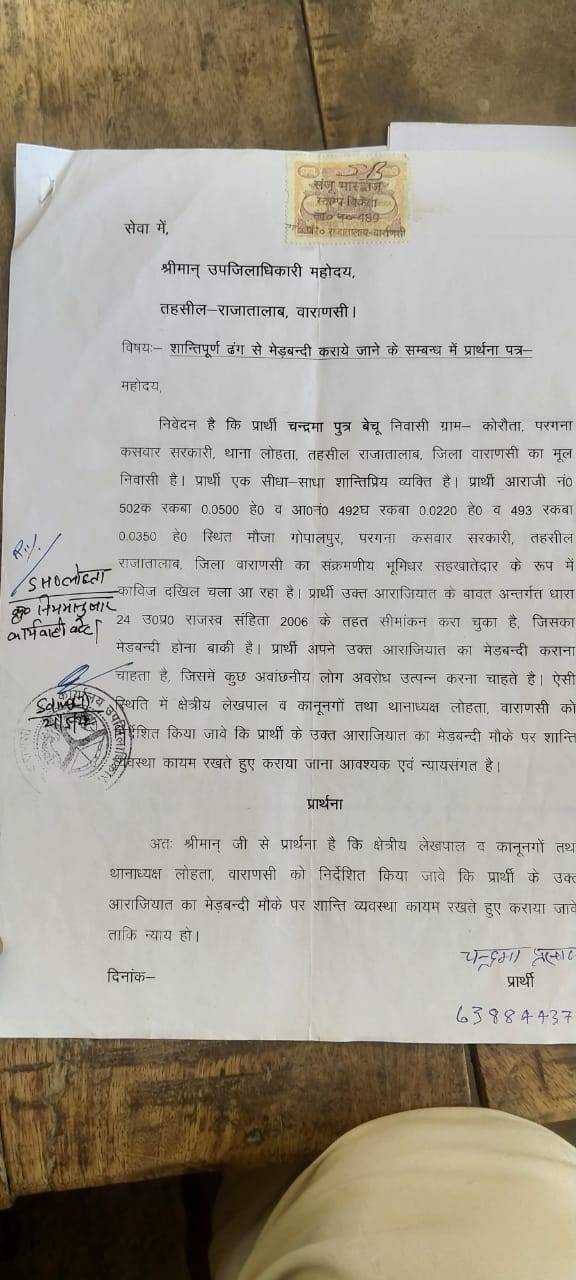 SB
संजू भारद्वाज
स्टाम्प विक्रेता
ला० न०-489
राजातालाब-वाराणसी
सेवा में,
श्रीमान् उपजिलाधिकारी महोदय,
तहसील–राजातालाब, वाराणसी।
विषयः– शान्तिपूर्ण ढंग से मेड़बन्दी कराये जाने के सम्बन्ध में प्रार्थना पत्र–
महोदय,
निवेदन है कि प्रार्थी चन्द्रमा पुत्र बेचू निवासी ग्राम– कोरौता, परगना
कसवार सरकारी, थाना लोहता, तहसील राजातालाब, जिला वाराणसी का मूल
निवासी है। प्रार्थी एक सीधा-साधा शान्तिप्रिय व्यक्ति है। प्रार्थी आराजी नं0
502क रकबा 0.0500 हे0 व आ0नं0 492घ रकबा 0.0220 हे0 व 493 रकबा
0.0350 हे0 स्थित मौजा गोपालपुर, परगना कसवार सरकारी, तहसील
राजातालाब, जिला वाराणसी का संक्रमणीय भूमिधर सहखातेदार के रूप में
काविज दखिल चला आ रहा है। प्रार्थी उक्त आराजियात के बावत अन्तर्गत धारा
24 उ0प्र0 राजस्व संहिता 2006 के तहत सीमांकन करा चुका है, जिसका
मेडबन्दी होना बाकी है। प्रार्थी अपने उक्त आराजियात का मेडबन्दी कराना
चाहता है, जिसमें कुछ अवांछनीय लोग अवरोध उत्पन्न करना चाहते है। ऐसी
स्थिति में क्षेत्रीय लेखपाल व कानूनगों तथा थानाध्यक्ष लोहता, वाराणसी को
निर्देशित किया जावे कि प्रार्थी के उक्त आराजियात का मेडबन्दी मौके पर शान्ति
व्यवस्था कायम रखते हुए कराया जाना आवश्यक एवं न्यायसंगत है।
SHO लोहता
नियमानुसार
कार्यवाही करें
प्रार्थना
अतः श्रीमान् जी से प्रार्थना है कि क्षेत्रीय लेखपाल व कानूनगों तथ
थानाध्यक्ष लोहता, वाराणसी को निर्देशित किया जावे कि प्रार्थी के उक्त
आराजियात का मेड़बन्दी मौके पर शान्ति व्यवस्था कायम रखते हुए कराया जावे
ताकि न्याय हो।
चन्द्रमा प्रसाद
दिनांक–
प्रार्थी
63884437